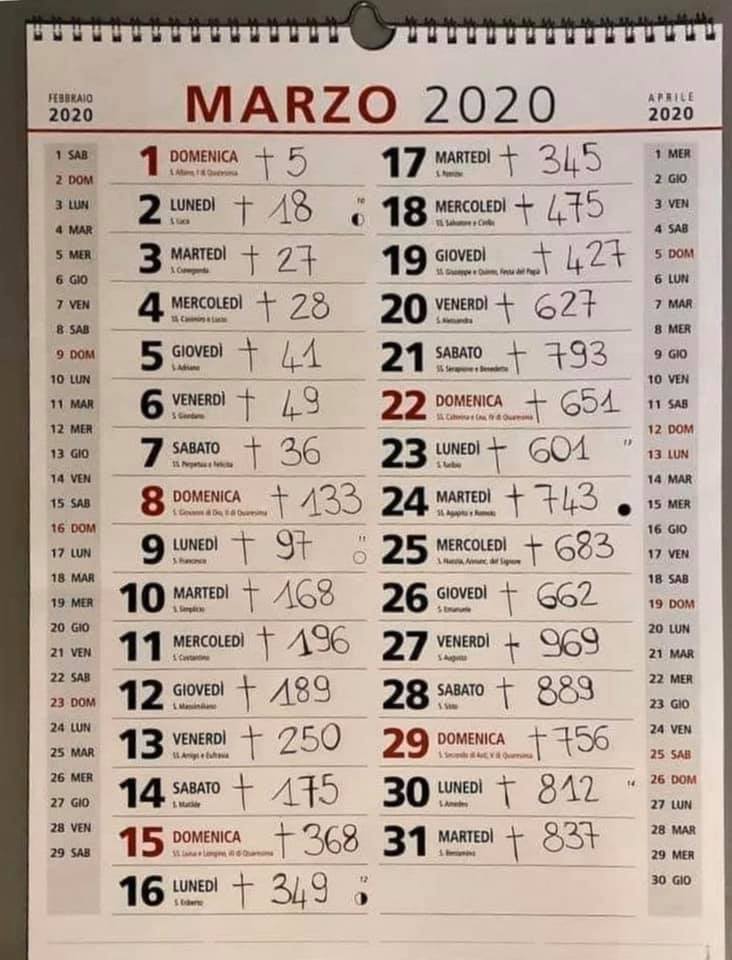 MARZO 2020
FEBBRAIO
2020
1 SAB
2 DOM
3 LUN
4 MAR
5 MER
6 GIO
7 VEN
8 SAB
9 DOM
10 LUN
11 MAR
12 MER
13 GIO
14 VEN
15 SAB
16 DOM
17 LUN
18 MAR
19 MER
20 GIO
21 VEN
22 SAB
23 DOM
24 LUN
25 MAR
26 MER
27 GIO
28 VEN
29 SAB
1 DOMENICA † 5
S. Albino, I di Quaresima
2 LUNEDÌ † 18
S. Luca
3 MARTEDÌ † 27
S. Cunegonda
4 MERCOLEDÌ † 28
SS. Casimiro e Lucio
5 GIOVEDÌ † 41
S. Adriano
6 VENERDÌ † 49
S. Giordano
7 SABATO † 36
SS. Perpetua e Felicita
8 DOMENICA † 133
S. Giovanni di Dio, II di Quaresima
9 LUNEDÌ † 97
S. Francesca
10 MARTEDÌ † 168
S. Simplicio
11 MERCOLEDÌ † 196
S. Costantino
12 GIOVEDÌ † 189
S. Massimiliano
13 VENERDÌ † 250
SS. Arrigo e Eufrasia
14 SABATO † 175
S. Matilde
15 DOMENICA † 368
SS. Luisa e Longino, III di Quaresima
16 LUNEDÌ † 349
S. Eriberto
17 MARTEDÌ † 345
S. Patrizio
18 MERCOLEDÌ † 475
SS. Salvatore e Cirillo
19 GIOVEDÌ † 427
SS. Giuseppe e Quinto, Festa del Papà
20 VENERDÌ † 627
S. Alessandra
21 SABATO † 793
SS. Serapione e Benedetto
22 DOMENICA † 651
SS. Caterina e Lea, IV di Quaresima
23 LUNEDÌ † 601
S. Turibio
24 MARTEDÌ † 743
SS. Agapito e Romolo
25 MERCOLEDÌ † 683
S. Nunzia, Annunc. del Signore
26 GIOVEDÌ † 662
S. Emanuele
27 VENERDÌ † 969
S. Augusto
28 SABATO † 889
S. Sisto
29 DOMENICA † 756
S. Secondo di Asti, V di Quaresima
30 LUNEDÌ † 812
S. Amedeo
31 MARTEDÌ † 837
S. Beniamino
APRILE
2020
1 MER
2 GIO
3 VEN
4 SAB
5 DOM
6 LUN
7 MAR
8 MER
9 GIO
10 VEN
11 SAB
12 DOM
13 LUN
14 MAR
15 MER
16 GIO
17 VEN
18 SAB
19 DOM
20 LUN
21 MAR
22 MER
23 GIO
24 VEN
25 SAB
26 DOM
27 LUN
28 MAR
29 MER
30 GIO